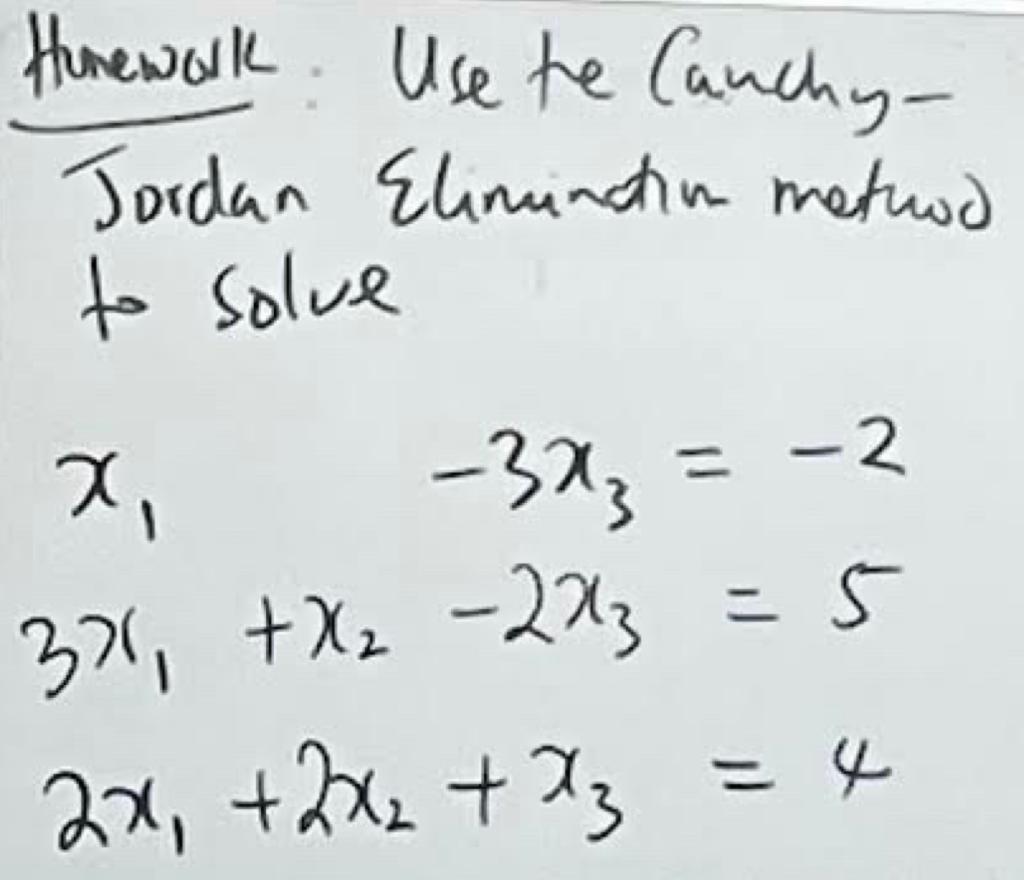 Homework. Use the Cauchy-
Jordan Elimination method
to solve
x₁ -3x₃ = -2
3x₁ +x₂ -2x₃ = 5
2x₁ +2x₂ + x₃ = 4